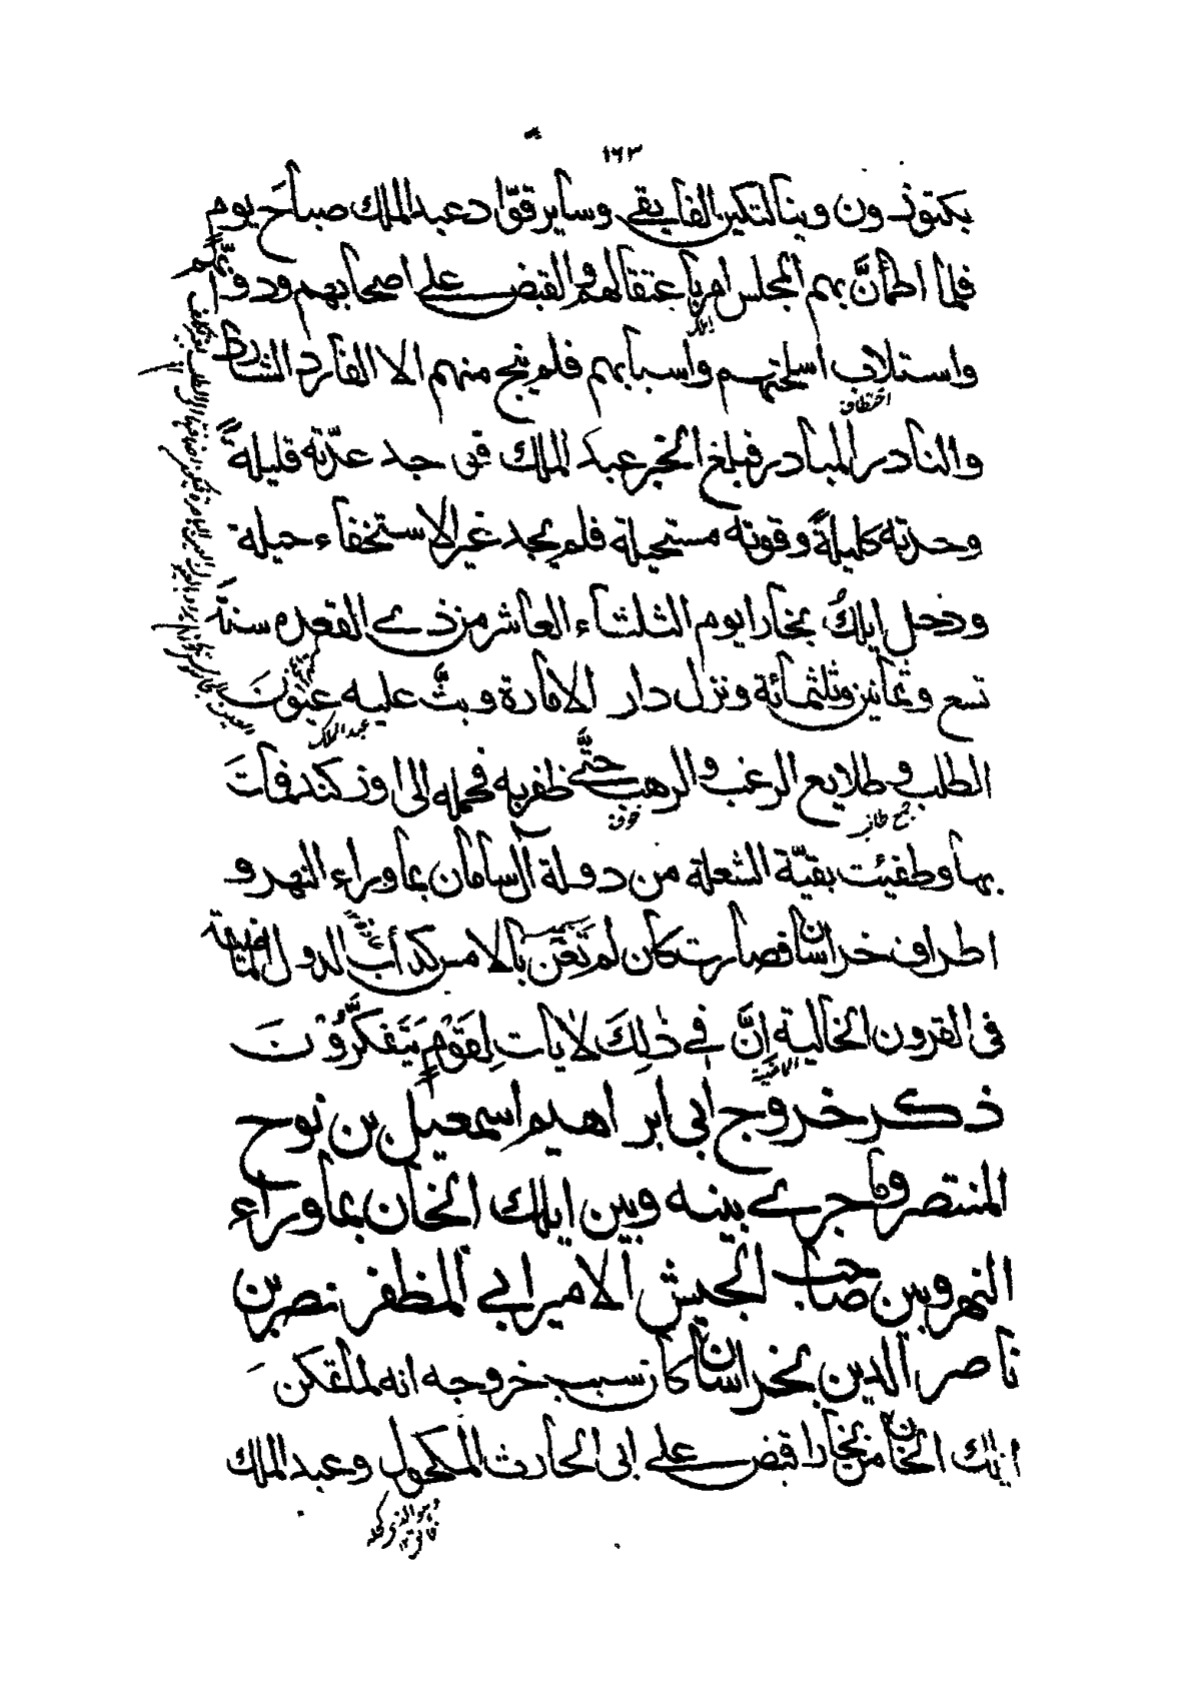 ١٦٣
بكتوزون وينالتكين الفايقي وساير قوّاد عبد الملك صباح يوم
فلما اطمأنَّ بهم المجلس امر باعتقالهم والقبض على اصحابهم ودوابهم
واستلاب اسلحتهم واسبابهم فلم ينج منهم الا الفارد الشارد
والنادر المبادر فبلغ الخبر عبد الملك فى جد عدّته قليلة
وحدته كليلة وقوته مستحيلة فلم يجد غير الاستخفاء حيلة
ودخل ايلك بخارا يوم الثلثاء العاشر من ذي القعده سنة
تسع وثمانين وثلثمائة ونزل دار الامارة وبثَّ عليه عيونَ
عبد الملك
الطلب وطلايع الرغب والرهب حتَّى ظفر به فحمله الى اوزكند فماتَ
خوف
بها وطفيئت بقيّة الشعلة من دولة آل سامان بماوراء النهر و
اطراف خراسان فصارت كان لم تَغْنَ بالامس كدأب الدول الماضية
فى القرون الخالية اِنَّ فِي ذٰلِكَ لَاٰيات لِقَوْمٍ يَتَفَكَّرُوْنَ
الماضية
ذكر خروج ابى ابراهيم اسمعيل بن نوح
المنتصر وما جرى بينه وبين ايلك الخان بماوراء
النهر وبين صاحب الجيش الامير ابي المظفر نصر بن
ناصر الدين بخراسان كان سبب خروجه انه لما تمكن
ايلك الخان من بخارا قبض على ابى الحارث المكحول وعبد الملك